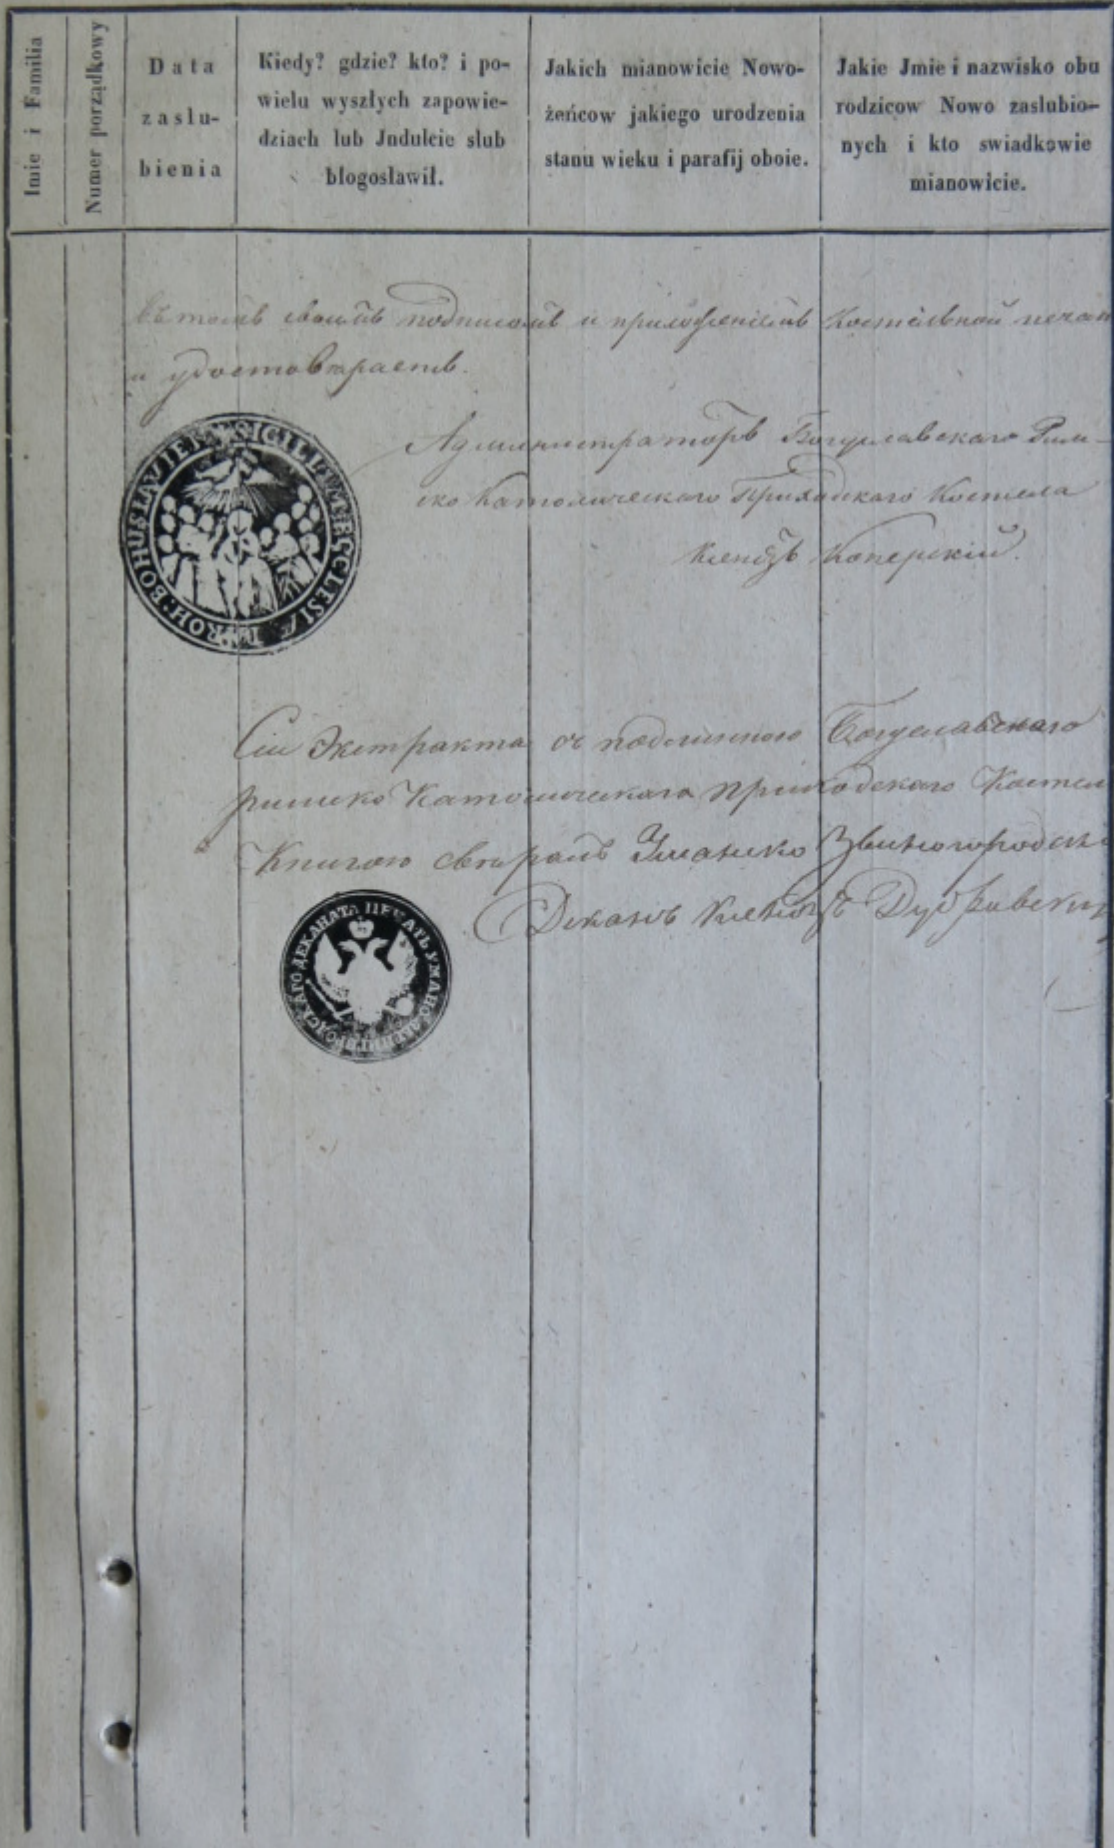 Imie i Familia
Numer porządkowy
Data
zaslu-
bienia
Kiedy? gdzie? kto? i po-
wielu wyszłych zapowie-
dziach lub Jndulcie slub
błogosławił.
Jakich mianowicie Nowo-
żeńcow jakiego urodzenia
stanu wieku i parafij oboie.
Jakie Jmie i nazwisko obu
rodzicow Nowo zaslubio-
nych i kto swiadkowie
mianowicie.
въ томъ своимъ подписомъ и приложеніемъ Костельной печат
и удостовѣряетъ.
SIGILLUM ECCLESIÆ PAROH: BOHUSLAVIEN
Администраторъ Богуславскаго Рим-
ско Католическаго Приходскаго Костела
Ксендзъ Коперскій.
Сіи Экстракта съ подлинною Богуславскаго
римско Католическаго приходскаго Костел
Книгою свѣрялъ Уманско Звиногородск
Деканъ Ксендзъ Дубравскій
ПЕЧАТЬ УМАНО ДЕКАНАТА